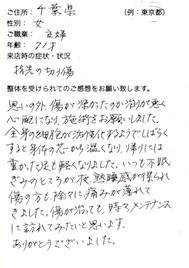 ご住所: 千葉県 (例:東京都)
性別: 女
ご職業: 主婦
年齢: 71才
来店時の症状・状況
指先の切り傷
整体を受けられてのご感想をお願い致します。
思いの外 傷が深かったのか治りが悪く
心配になり、施術をお願いしました。
全身の細胞が活性化するようでしばらく
すると身体の芯から温くなり、帰りには
重かった足も軽くなりました。いつも不眠
ぎみのところが、夜、熟睡感が得られ
傷の方も除々に痛みが薄れて
きました。傷が治っても、時々メンテナンス
に訪れてみたいと思います。
ありがとうございました。